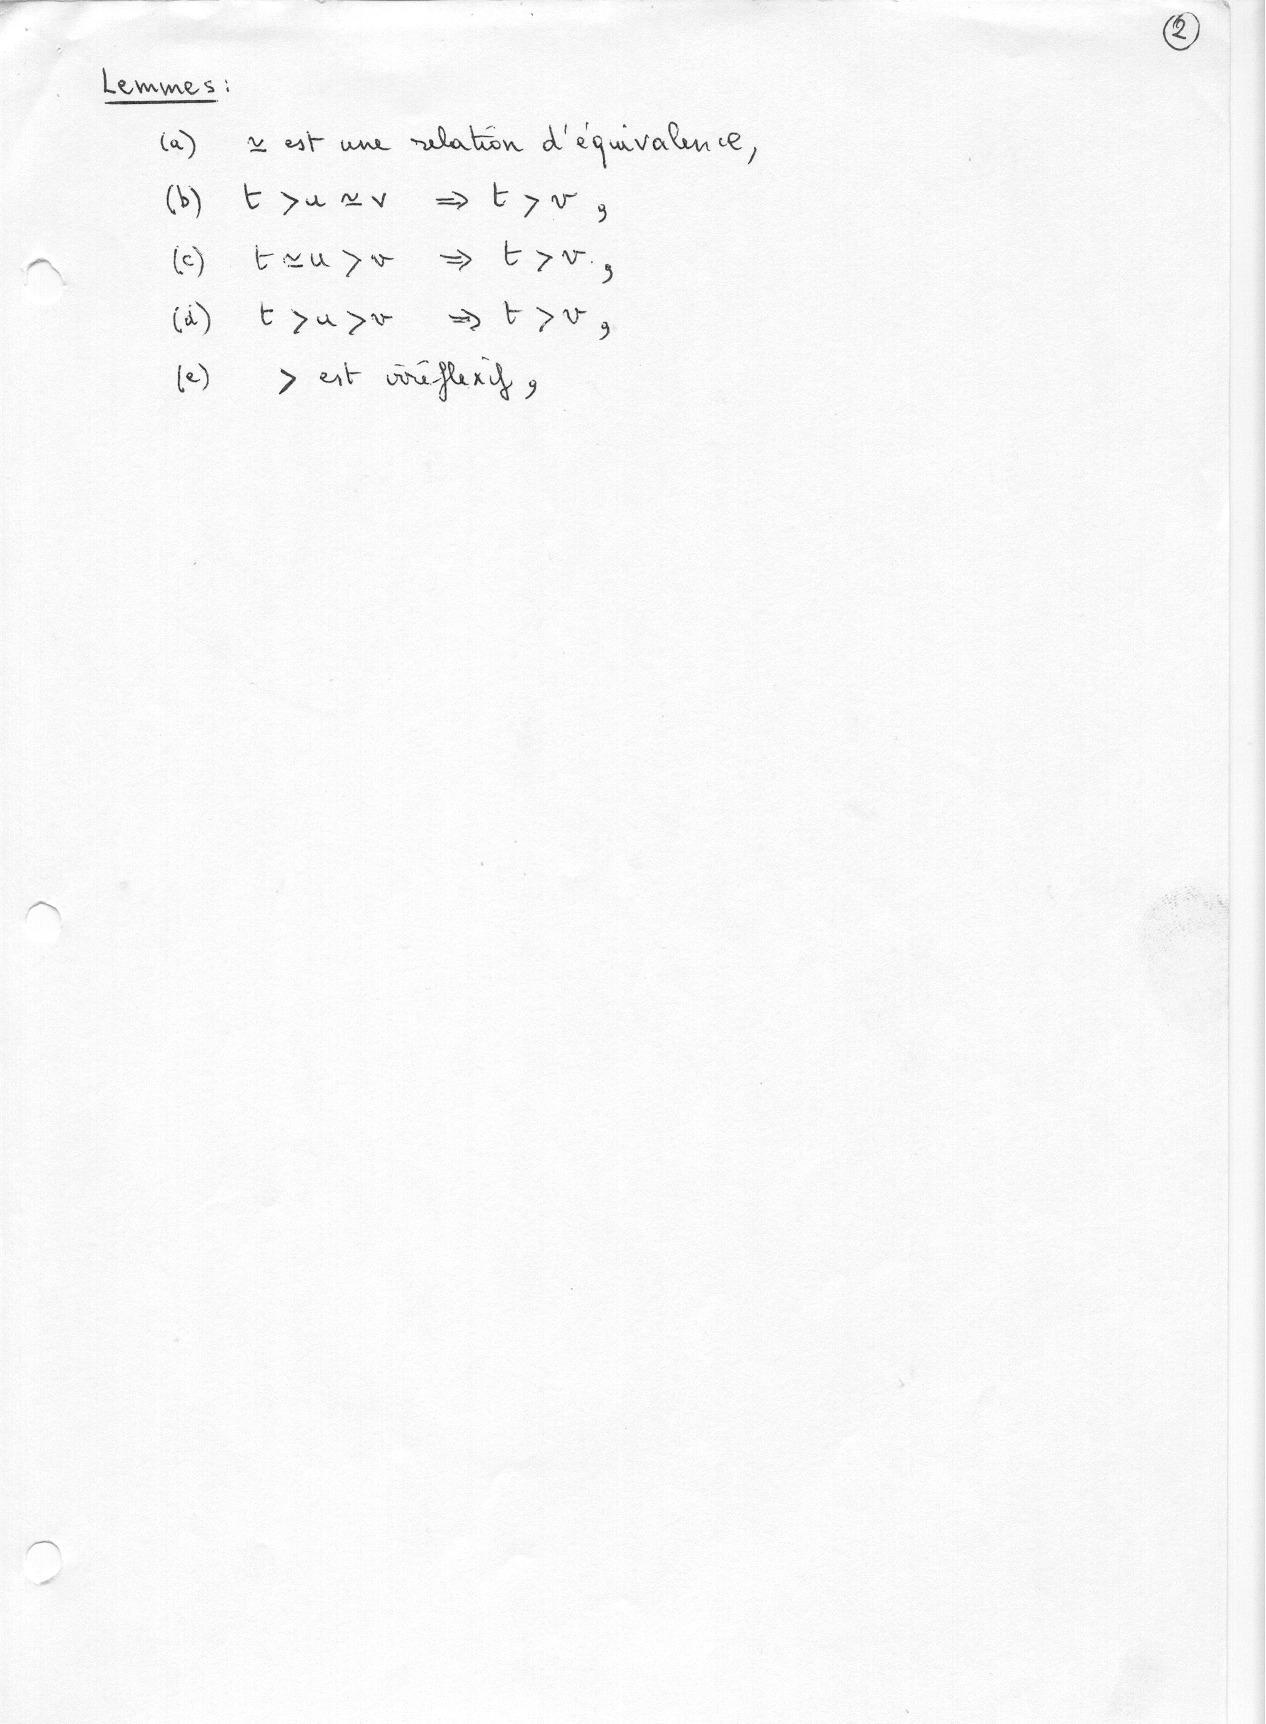 ②
Lemmes :
(a) ≃ est une relation d'équivalence,
(b) t > u ≃ v ⇒ t > v ,
(c) t ≃ u > v ⇒ t > v ,
(d) t > u > v ⇒ t > v ,
(e) > est irréflexif ,